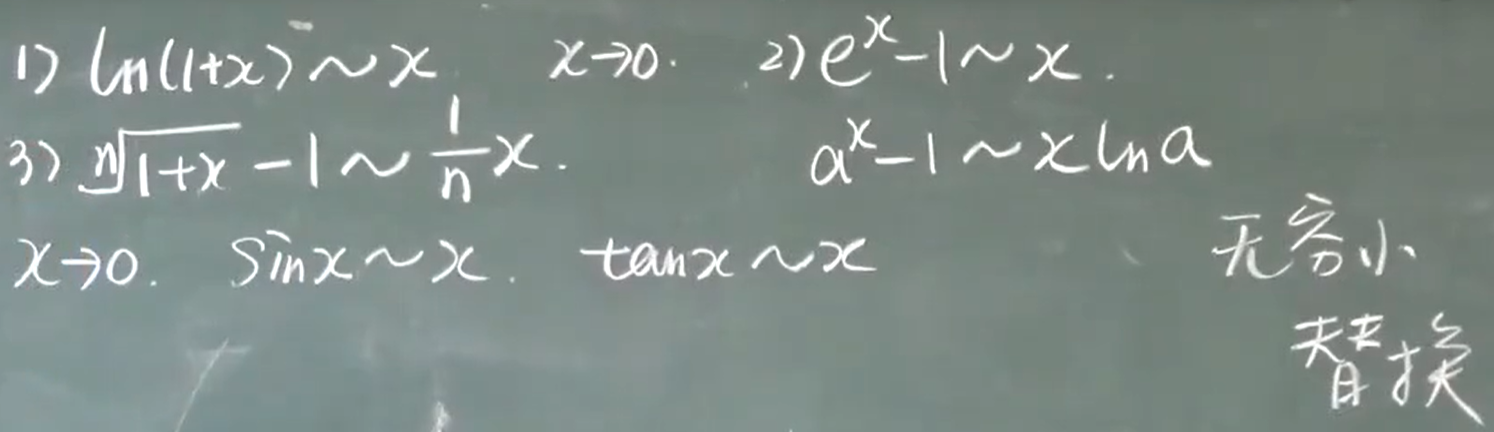 1) ln(1+x) ~ x x→0. 2) e^x-1 ~ x.
3) ⁿ√(1+x) -1 ~ 1/n x. a^x-1 ~ x ln a
x→0. sinx ~ x. tanx ~ x 无穷小
替换